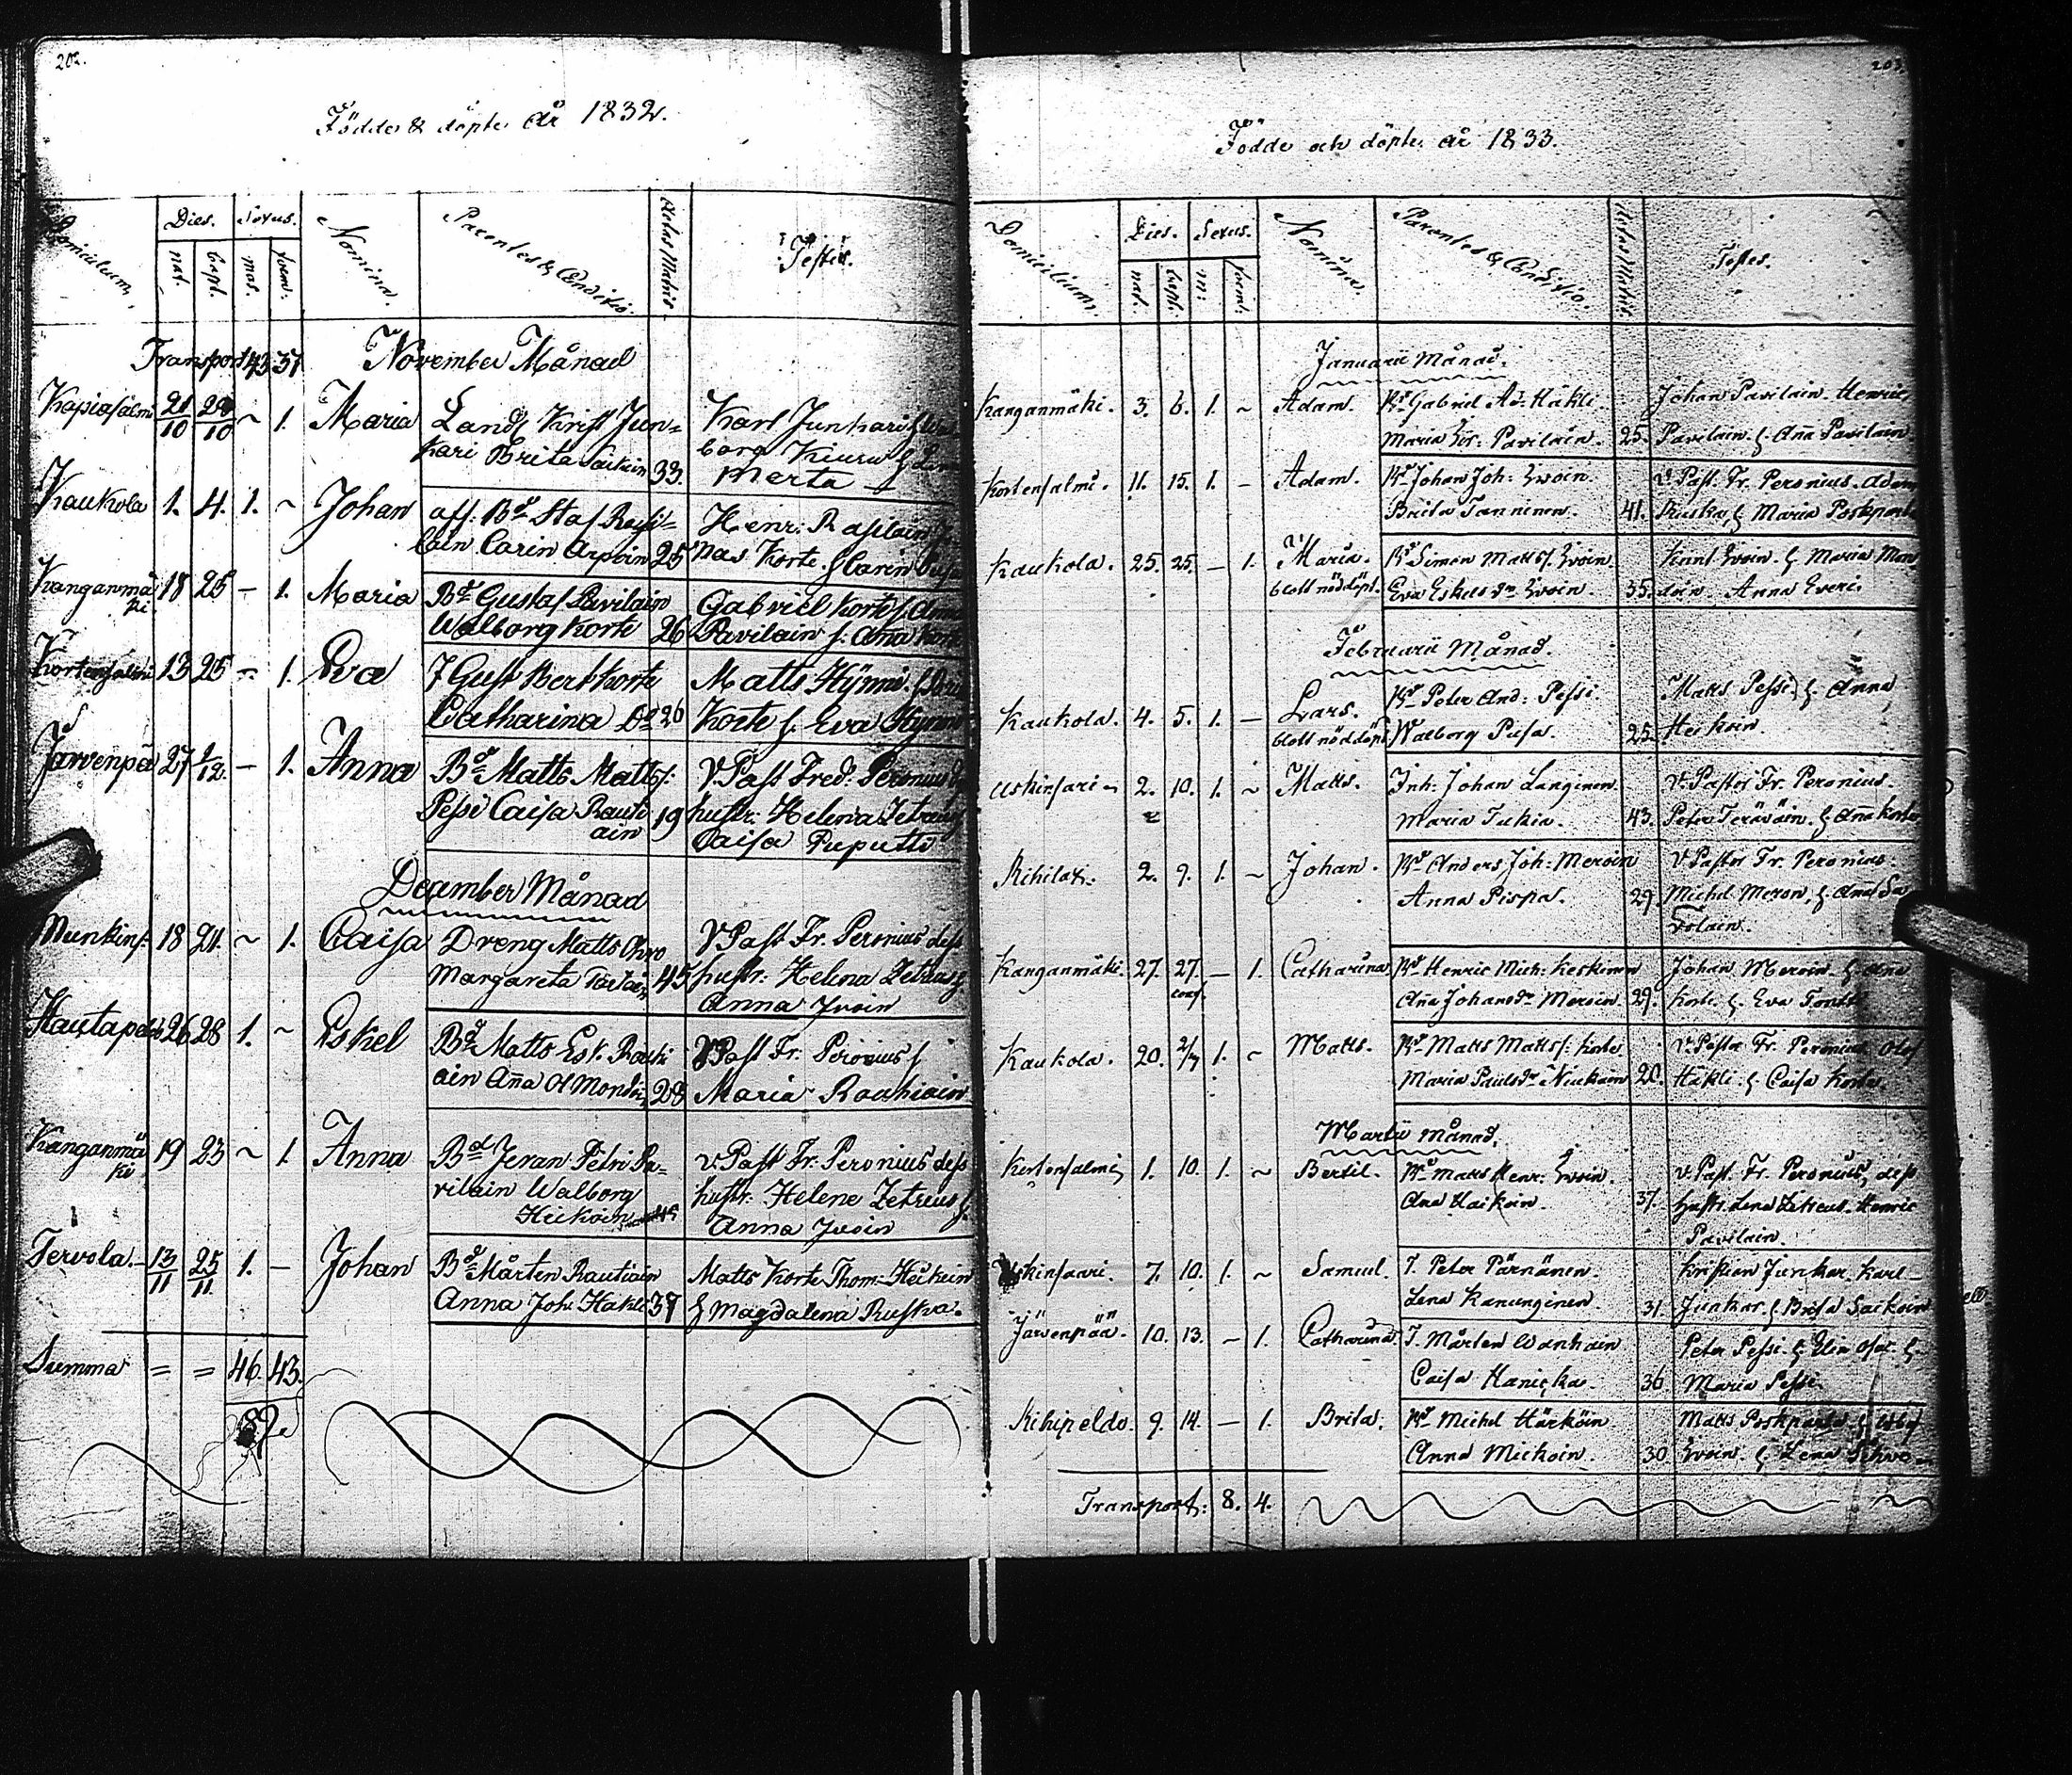 202.
Födde & döpte År 1832.
Domicilium.
Dies.
Sexus.
nat.
bapt.
mas.
fœm:
Nomina.
Parentes & Conditio.
Aetas Matris
Testes.
Transport 43 37
November Månad
Kapiasalmi 21/10 28/10 ~ 1. Maria
Landb Krist Jun=
kari Brita Saikain 33.
Karl Junkari &
borg Kiuru &
Merta
Kaukola 1. 4. 1. ~ Johan
Bd Staf Rasi=
lain Carin Arpoin 25
Henr. Rasilain
nas Korte & Carin
Kanganmä
ki 18 25 – 1. Maria
Bd Gustaf Pavilain
Walborg Korte 26
Gabriel Korte & Anna
Pavilain & Anna Korte
Kortensalmi 13 25 – 1. Eva
T Gust Bert Korte
Catharina Do 26
Matts Hÿmi &
Korte & Eva Hÿmi
Järvenpä 27 2/12. – 1. Anna
Bd Matts Matts:
Pessi Caisa Rauti
ain 19
V. Past Fred: Peronius
hustr: Helena Zetreus &
Caisa Puputti
December Månad
Munkins: 18 21. ~ 1. Caisa
Dreng Matts Ohvo
Margareta 45
V Past Fr. Peronius dess
hustr: Helena Zetreus &
Anna Ivoin
Hautapeldo 26 28 1. ~ Eskel
Bd Matts Esk. Rauti
ain Aña Ol Mondoin 28
V Past Fr. Peronius &
Maria Rauhiain
Kanganmä
ki 19 23 ~ 1. Anna
Bd Jeran Petri Pa-
vilain Walborg
Heikoin 45
v. Past Fr. Peronius dess
hustr. Helene Zetreus &
Anna Ivoin
Tervola. 13/11 25/11. 1. – Johan
Bd Mårten Rautiain
Anna Joh: Häkli 37
Matts Korte Thom: Heikoin
& Magdalena Ruska.
Summa = = 46. 43.
89.
203.
Födde och döpte år 1833.
Domicilium.
Dies.
Sexus.
nat.
bapt.
m:
fœm:
Nomina.
Parentes & Conditio.
Aetas Matris
Testes.
Januarii Månad.
Kanganmäki. 3. 6. 1. ~ Adam.
Bd Gabriel Ad: Häkli.
Maria Pavilain. 25.
Johan Pavilain. Henric
Pavilain. & Aña Pavilain
Kortensalmi. 11. 15. 1. – Adam.
Bd Johan Joh: Ivoin.
Brita Tanninen. 41.
v. Past. Fr. Peronius. Adam
Ruska, & Maria Poskparta
Kaukola. 25. 25. – 1. Maria.
blott nöddöpt.
Bd Simon Matts: Ivoin.
Eva Eskels dr Ivoin. 35.
Knut Ivoin. & Maria Mon
doin. Anna Everi.
Februarii Månad.
Kaukola. 4. 5. 1. – Lars.
blott nöddöpt
Bd Peter And: Pessi.
Walborg Pusa. 25.
Matts Pessi. & Anna
Heikoin.
Uskinsari 2. 10. 1. ~ Matts.
Inh: Johan Langinen
Maria Tukia. 43.
v. Pastor Fr. Peronius.
Peter Teräväin. & Aña Korte
Rihilax. 2. 9. 1. ~ Johan.
Bd Anders Joh: Meroin
Anna Pispa. 29.
V Pastor Fr. Peronius.
Michel Meron, & Aña Sa
volain.
Kanganmäki. 27. 27. – 1. Catharina
conf.
Bd Henric Mich: Keskinen
Aña Johansdr Meroin. 29.
Johan Meroin. & Ana
Korte. & Eva Tontti
Kaukola. 20. 2/3 1. ~ Matts.
Bd Matts Matts: Korte
Maria Paulsdr Niukain 20.
v. Pastor Fr. Peronius Olof
Häkli. & Caisa Korte
Martii månad.
Kortensalmi 1. 10. 1. ~ Bertil.
Bd Matts Henr: Ivoin.
Ana Haikoin. 37.
v. Past. Fr. Peronius, dess
hustr. Lena Zetreus. Henric
Pavilain.
Uskinsaari. 7. 10. 1. ~ Samuel.
T. Peter Pärnänen.
Lena Kanunginen. 31.
Kristian Junkar. Karl
Junkar. & Brita Saikoin
Järvenpää. 10. 13. – 1. Catharina
T. Mårten Wanhain
Caisa Hanicka. 36.
Peter Pessi. & Elin &
Maria Pessi.
Rihipeldo. 9. 14. – 1. Brita.
Bd Michel Härköin
Anna Mickoin. 30.
Matts Poskparta &
Ivoin. & Lena
Transport: 8. 4.